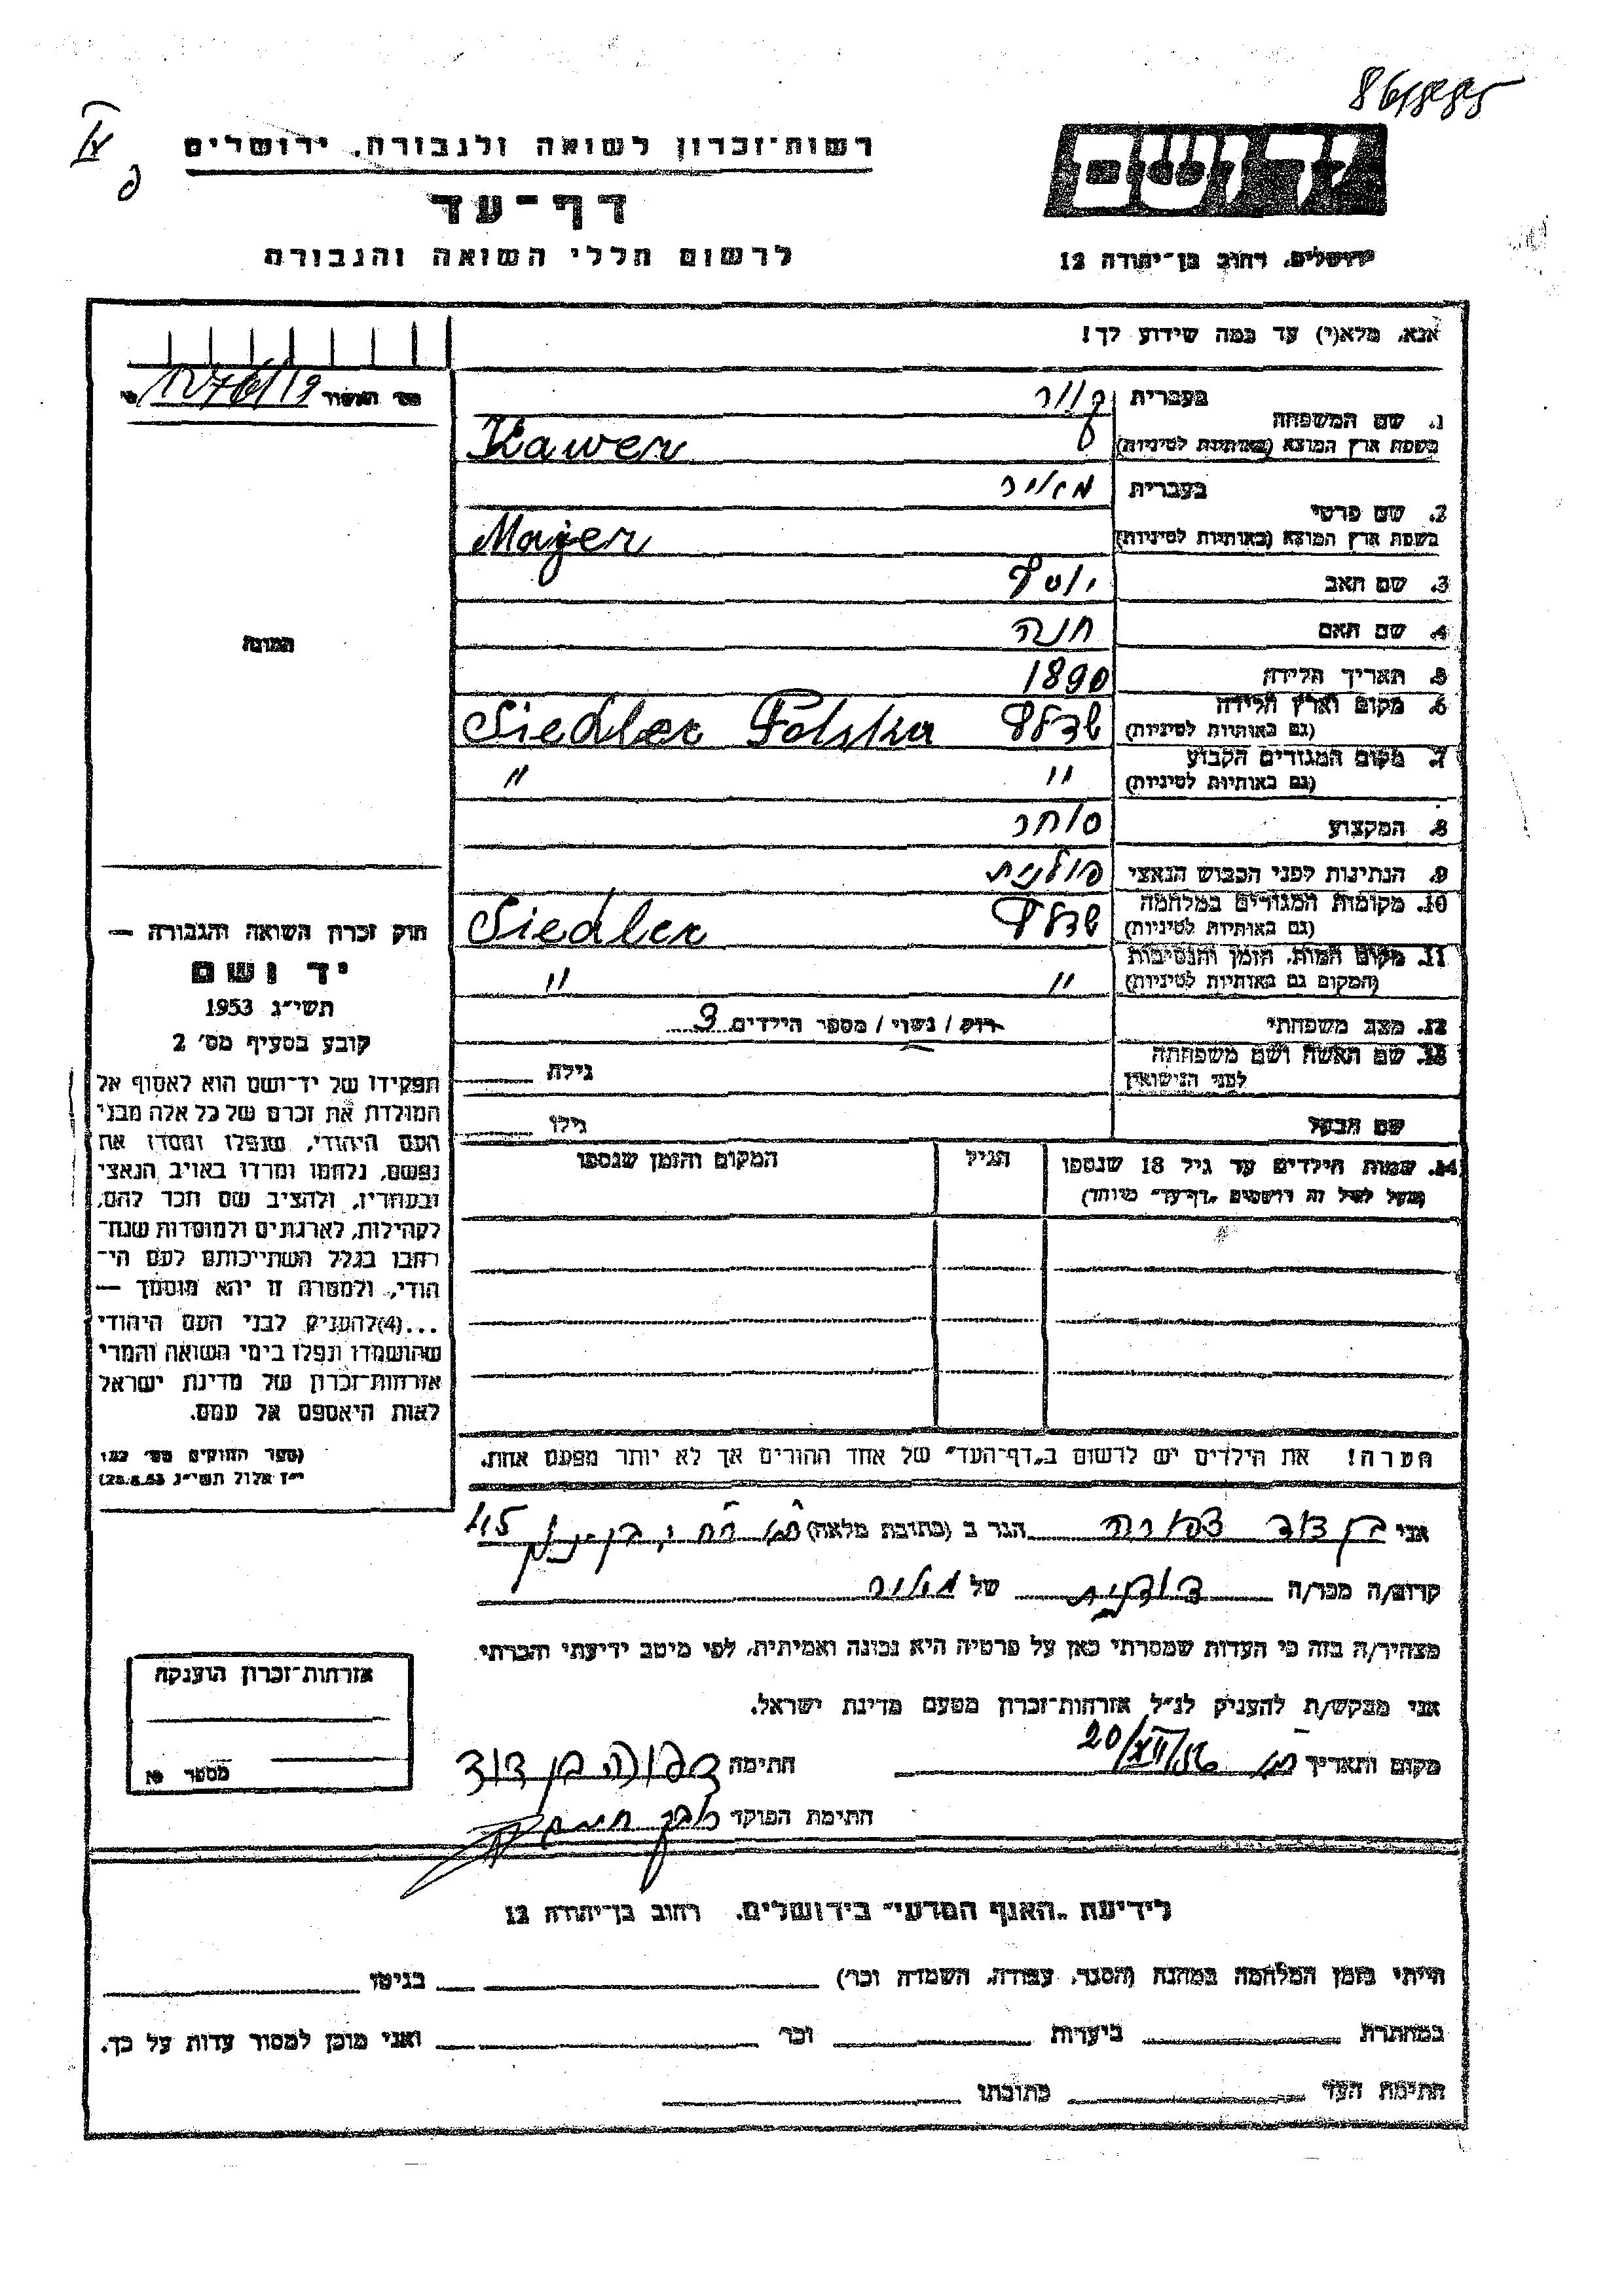 רשות־זכרון לשואה ולגבורה, ירושלים
דף־עד
לרשום חללי השואה והגבורה
יד ושם
ירושלים, רחוב בן־יהודה 12
אנא, מלא(י) עד כמה שידוע לך!
1. שם המשפחה
בעברית קוור
בשפת ארץ המוצא (באותיות לטיניות) Kawer
2. שם פרטי
בעברית מאיר
בשפת ארץ המוצא (באותיות לטיניות) Majer
3. שם האב יוסף
4. שם האם חנה
5. תאריך הלידה 1890
6. מקום וארץ הלידה
(גם באותיות לטיניות) Siedlec Polska
7. מקום המגורים הקבוע
(גם באותיות לטיניות) " "
8. המקצוע סוחר
9. הנתינות לפני הכבוש הנאצי פולנית
10. מקומות המגורים במלחמה
(גם באותיות לטיניות) Siedlec
11. מקום המות, הזמן והנסיבות
(המקום גם באותיות לטיניות) " "
12. מצב משפחתי רוק / נשוי / מספר הילדים 3
13. שם האשה ושם משפחתה
לפני הנישואין גילה
שם הבעל גילו
14. שמות הילדים עד גיל 18 שנספו
הגיל
המקום והזמן שנספו
(מעל לגיל זה רושמים „דף־עד" מיוחד)
הערה! את הילדים יש לרשום ב„דף־העד" של אחד ההורים אך לא יותר מפעם אחת.
מס' האשור
התמונה
חוק זכרון השואה והגבורה —
יד ושם
תשי"ג 1953
קובע בסעיף מס' 2
תפקידו של יד־ושם הוא לאסוף אל
המולדת את זכרם של כל אלה מבני
העם היהודי, שנפלו ומסרו את
נפשם, נלחמו ומרדו באויב הנאצי
ובעוזריו, ולהציב שם וזכר להם,
לקהילות, לארגונים ולמוסדות שנח־
רבו בגלל השתייכותם לעם הי־
הודי, ולמטרה זו יהא מוסמך —
...(4) להעניק לבני העם היהודי
שהושמדו ונפלו בימי השואה והמרי
אזרחות־זכרון של מדינת ישראל
לאות היאספם אל עמם.
(ספר החוקים מס' 132
י"ז אלול תשי"ג 28.8.53)
אני בן דוד צפורה הגר ב (כתובת מלאה)
קרוב/ה מכר/ה דודנית של מאיר
מצהיר/ה בזה כי העדות שמסרתי כאן על פרטיה היא נכונה ואמיתית, לפי מיטב ידיעתי והכרתי
אני מבקש/ת להעניק לנ"ל אזרחות־זכרון מטעם מדינת ישראל.
מקום ותאריך 20/XII/56 חתימה צפורה בן דוד
חתימת הפוקד
אזרחות־זכרון הוענקה
מספר
לידיעת „האגף המדעי" בירושלים, רחוב בן־יהודה 12
הייתי בזמן המלחמה במחנה (הסגר, עבודה, השמדה וכו') בגיטו
במחתרת ביערות וכו' ואני מוכן למסור עדות על כך.
חתימת העד כתובתו